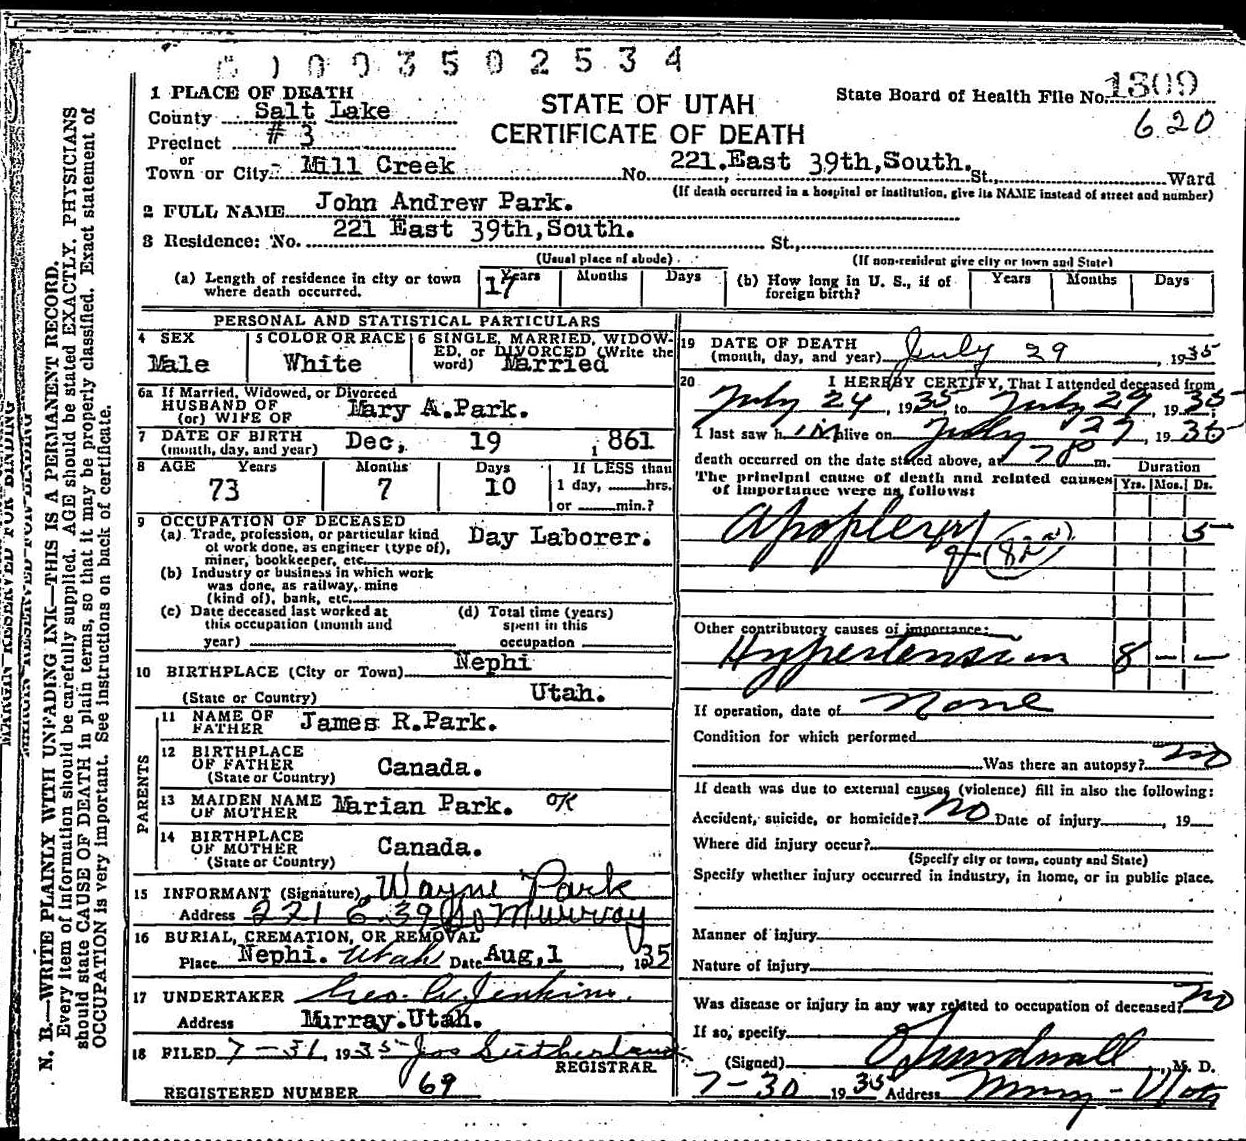 0 1 0 0 3 5 0 2 5 3 4
1 PLACE OF DEATH
County Salt Lake
Precinct # 3
or
Town or City Mill Creek
STATE OF UTAH
CERTIFICATE OF DEATH
State Board of Health File No. 1309
620
No. 221.East 39th,South. St., Ward
(If death occurred in a hospital or institution, give its NAME instead of street and number)
2 FULL NAME John Andrew Park.
3 Residence: No. 221 East 39th,South. St.,
(Usual place of abode) (If non-resident give city or town and State)
(a) Length of residence in city or town where death occurred. 17 Years Months Days
(b) How long in U. S., if of foreign birth? Years Months Days
PERSONAL AND STATISTICAL PARTICULARS
4 SEX Male
5 COLOR OR RACE White
6 SINGLE, MARRIED, WIDOWED, or DIVORCED (Write the word) Married
6a If Married, Widowed, or Divorced
HUSBAND OF
(or) WIFE OF Mary A.Park.
7 DATE OF BIRTH
(month, day, and year) Dec, 19 1861
8 AGE Years Months Days If LESS than
73 7 10 1 day, hrs.
or min.?
9 OCCUPATION OF DECEASED
(a) Trade, profession, or particular kind of work done, as engineer (type of), miner, bookkeeper, etc. Day Laborer.
(b) Industry or business in which work was done, as railway, mine (kind of), bank, etc.
(c) Date deceased last worked at this occupation (month and year)
(d) Total time (years) spent in this occupation
10 BIRTHPLACE (City or Town) Nephi
(State or Country) Utah.
PARENTS
11 NAME OF FATHER James R.Park.
12 BIRTHPLACE OF FATHER
(State or Country) Canada.
13 MAIDEN NAME OF MOTHER Marian Park. OK
14 BIRTHPLACE OF MOTHER
(State or Country) Canada.
15 INFORMANT (Signature) Wayne Park
Address 221 E. 39 So Murray
16 BURIAL, CREMATION, OR REMOVAL
Place Nephi. Utah Date Aug,1, 1935
17 UNDERTAKER Geo. W. Jenkins.
Address Murray.Utah.
18 FILED 7-31, 1935 Jos Sutherland
REGISTRAR
REGISTERED NUMBER 69
19 DATE OF DEATH
(month, day, and year) July 29, 1935
20 I HEREBY CERTIFY, That I attended deceased from
July 24, 1935, to July 29, 1935;
I last saw him alive on July 29 1935
death occurred on the date stated above, at m.
The principal cause of death and related causes of importance were as follows:
Duration
Yrs. Mos. Ds.
Apoplexy 5
(82a)
Other contributory causes of importance:
Hypertension 8 - -
If operation, date of None
Condition for which performed
Was there an autopsy? no
If death was due to external causes (violence) fill in also the following:
Accident, suicide, or homicide? No Date of injury, 19
Where did injury occur?
(Specify city or town, county and State)
Specify whether injury occurred in industry, in home, or in public place.
Manner of injury
Nature of injury
Was disease or injury in any way related to occupation of deceased? No
If so, specify
(Signed) Sundwall, M. D.
7-30 1935 Address Murray - Utah
MARGIN RESERVED FOR BINDING
N. B.—WRITE PLAINLY WITH UNFADING INK—THIS IS A PERMANENT RECORD.
Every item of information should be carefully supplied. AGE should be stated EXACTLY. PHYSICIANS
should state CAUSE OF DEATH in plain terms, so that it may be properly classified. Exact statement of
OCCUPATION is very important. See instructions on back of certificate.